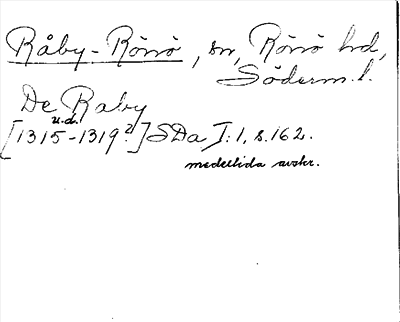 Råby-Rönö, sn, Rönö hd,
Söderm. l.
De Raby
u.d.
[1315-1319?] SDa I:1, s. 162.
medeltida avskr.